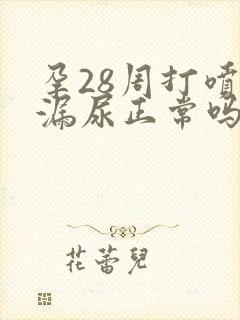 孕28周打喷
漏尿正常吗
花蕾儿